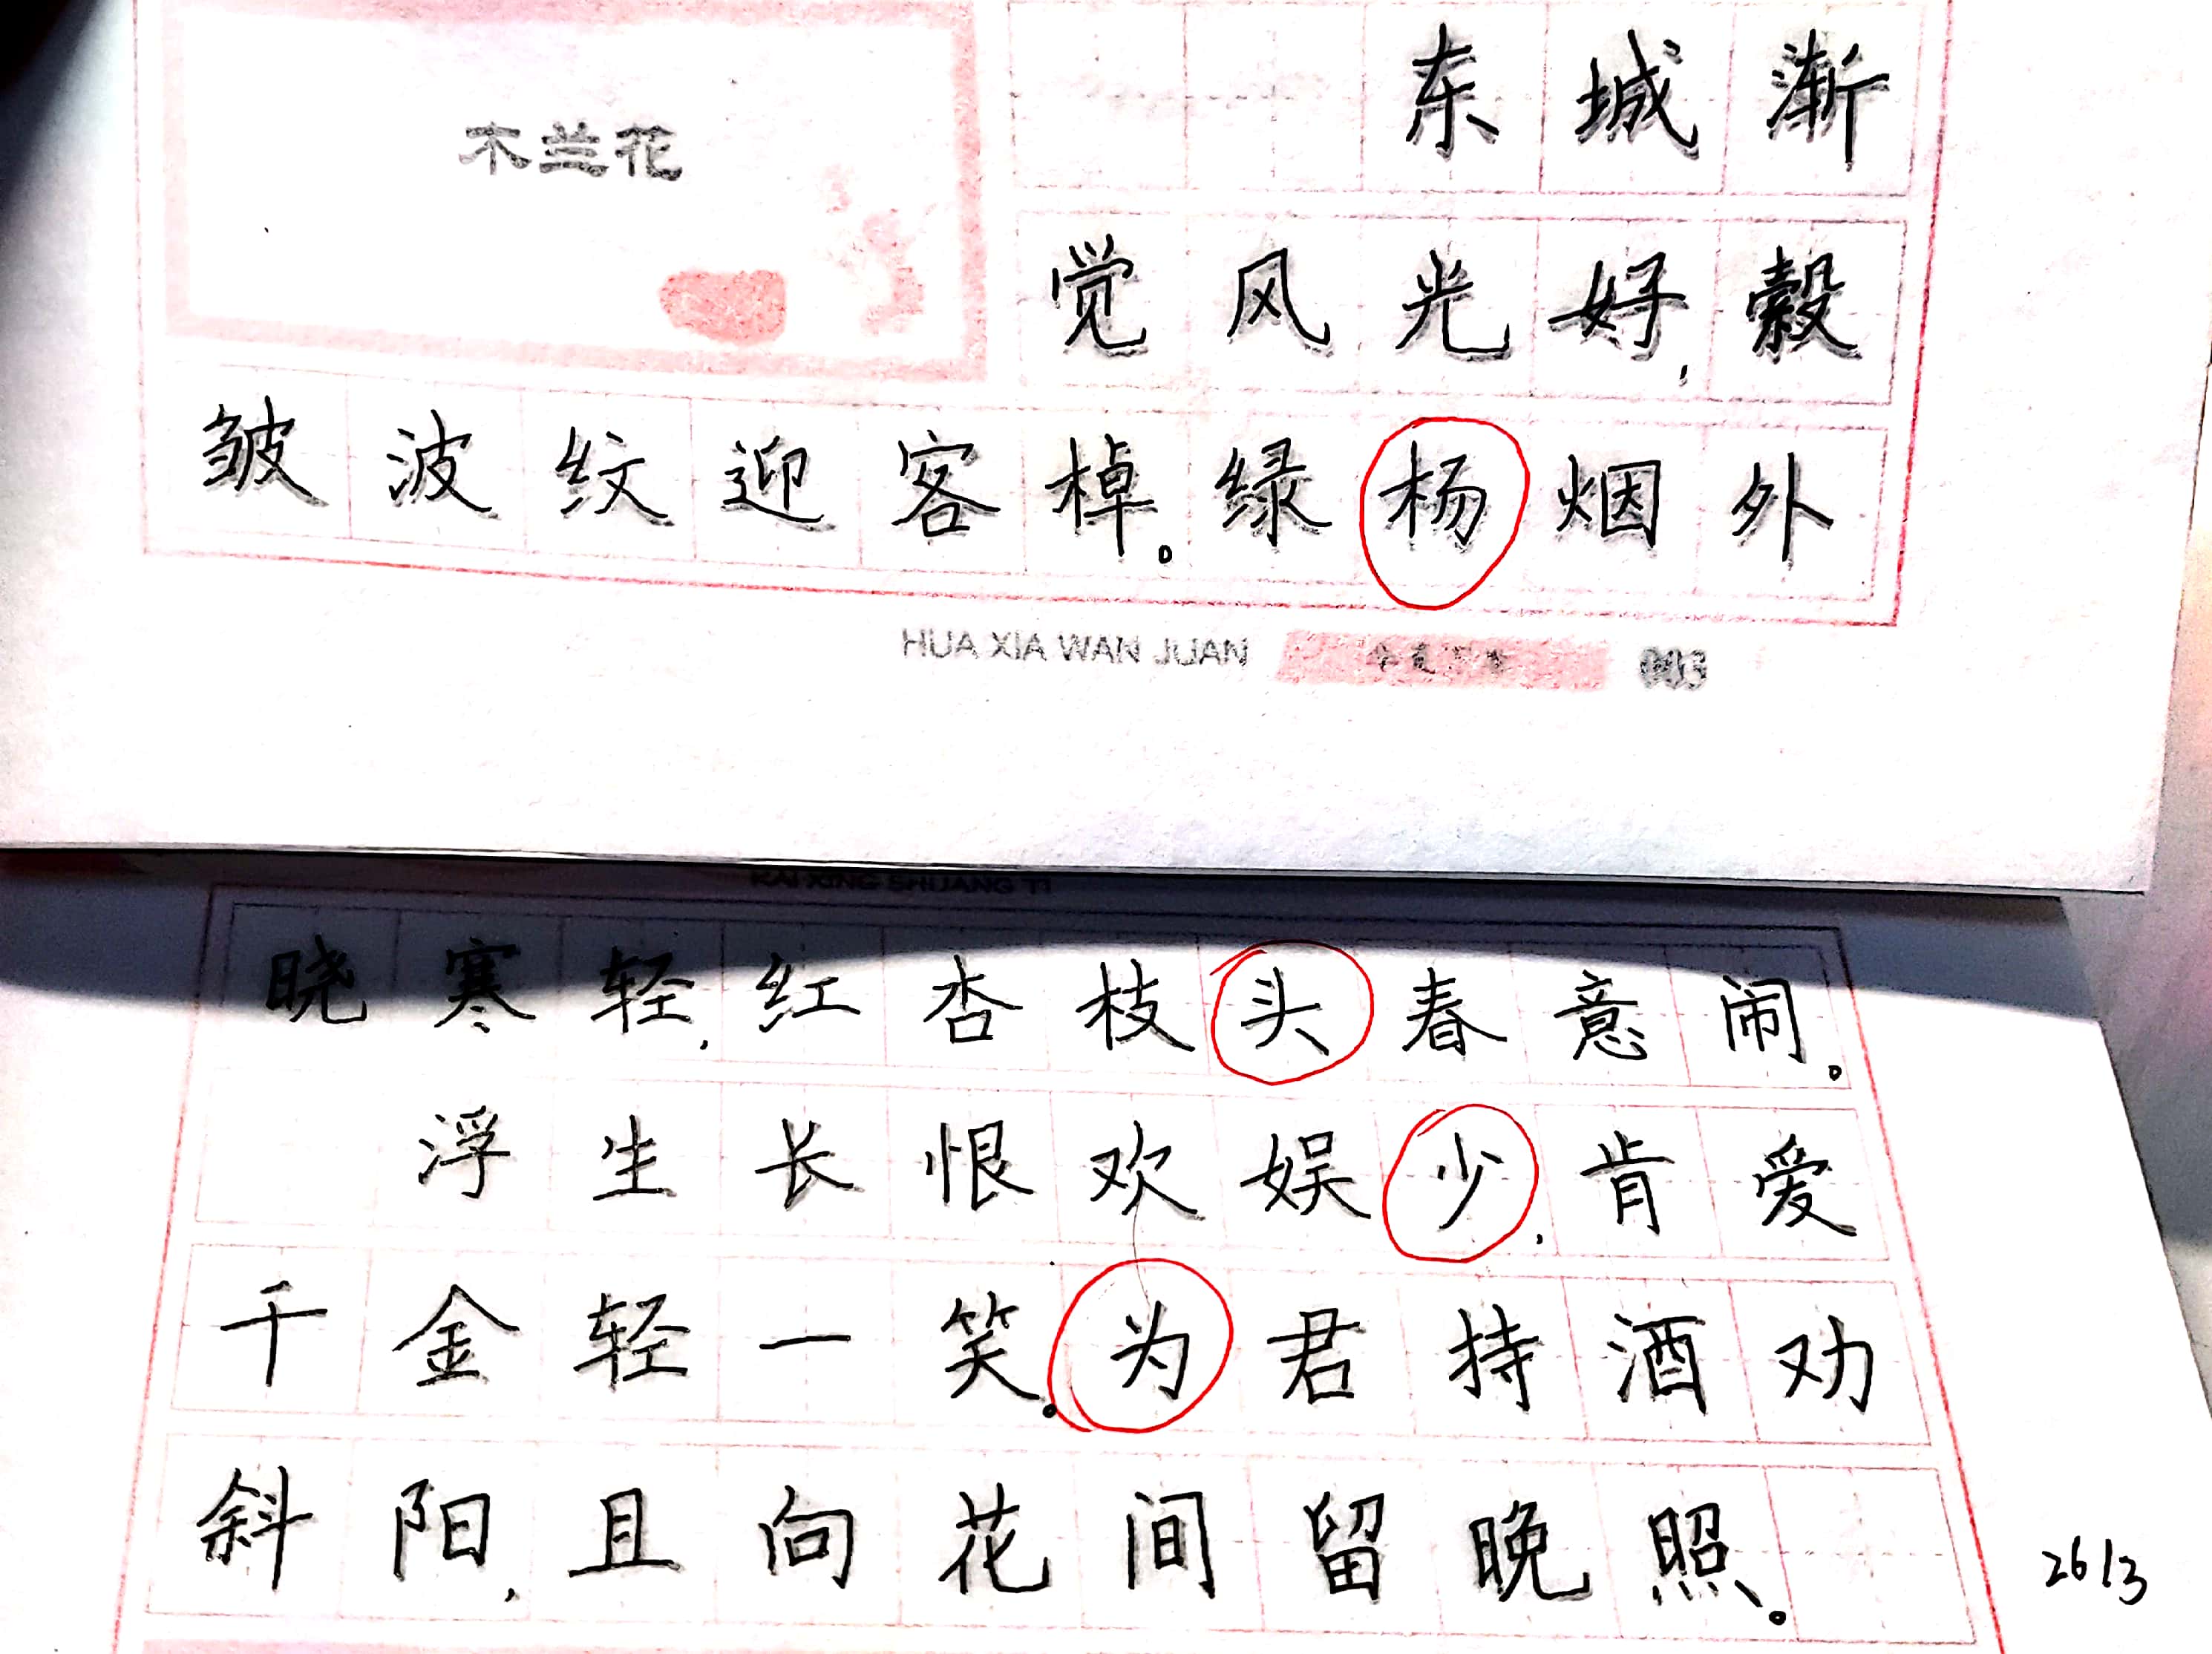 木兰花
东城渐
觉风光好,縠
皱波纹迎客棹。绿杨烟外
HUA XIA WAN JUAN
KAI XING SHUANG TI
晓寒轻,红杏枝头春意闹。
浮生长恨欢娱少,肯爱
千金轻一笑。为君持酒劝
斜阳,且向花间留晚照。
2613